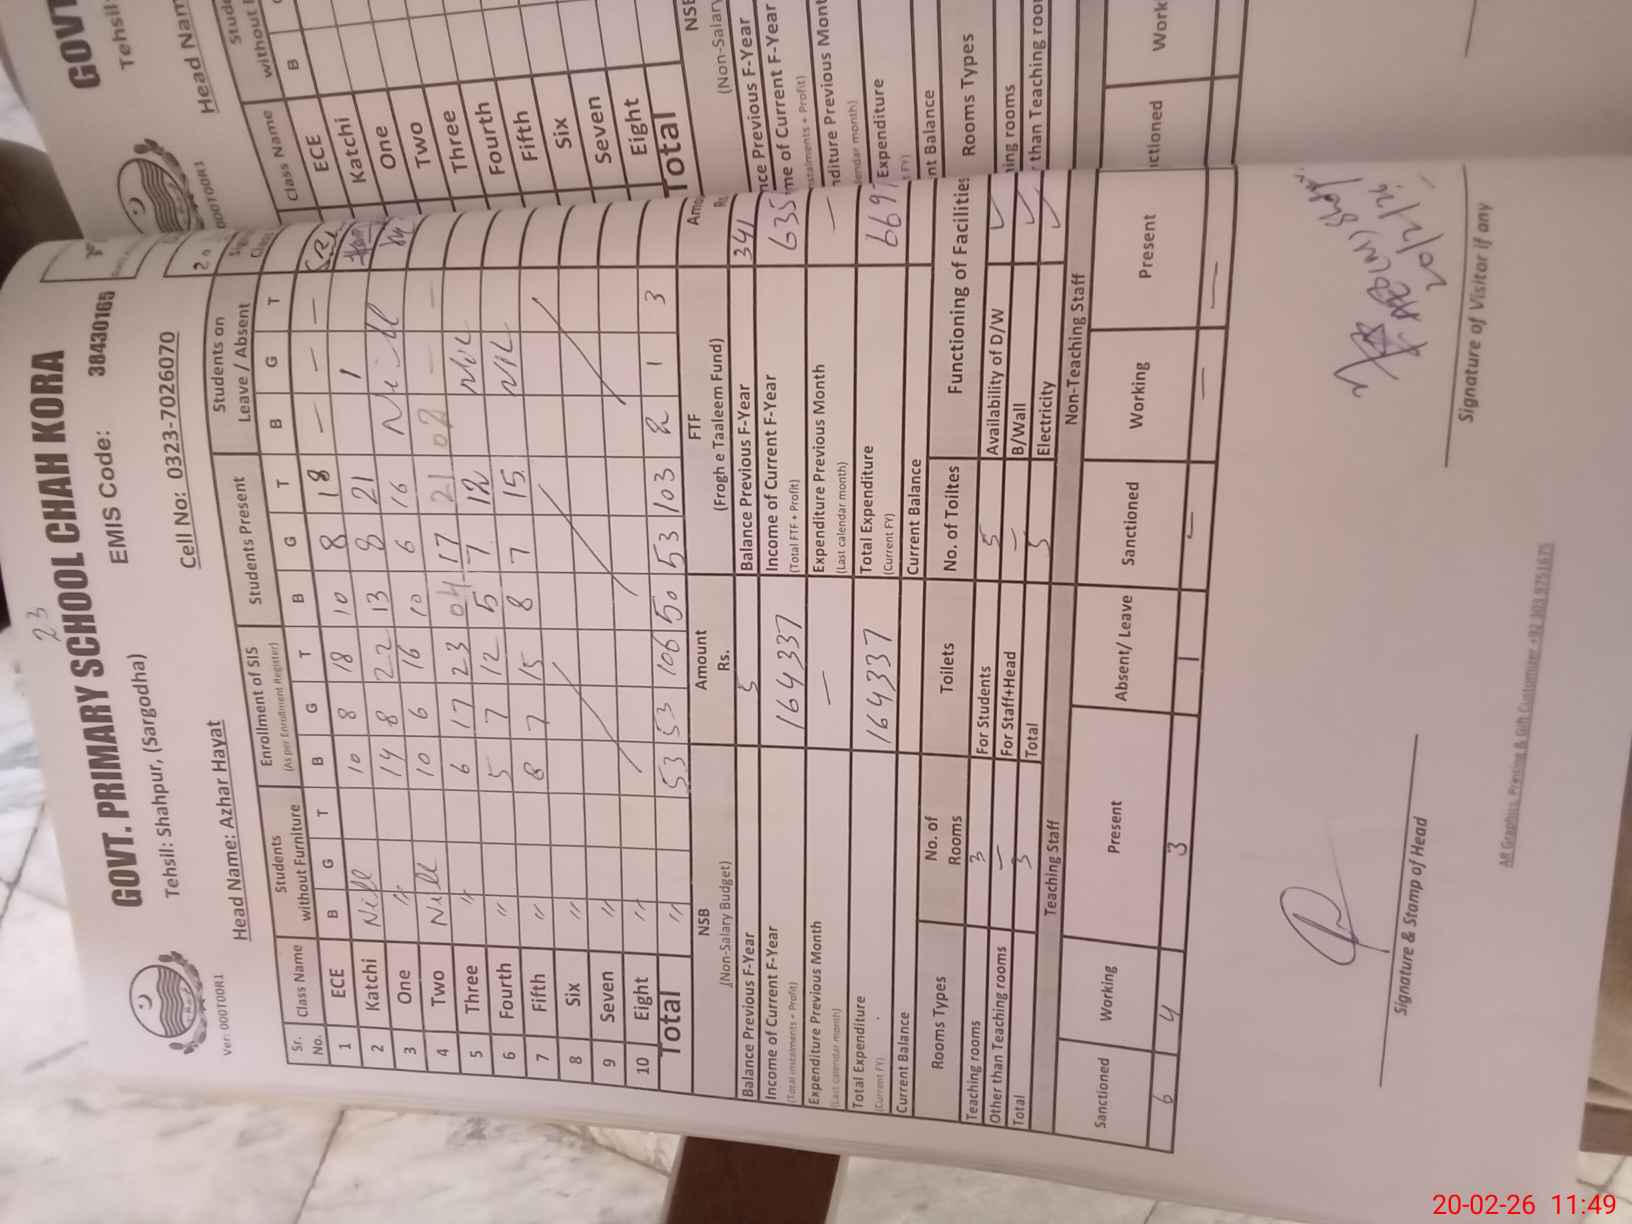 23
GOVT. PRIMARY SCHOOL CHAH KORA
Tehsil: Shahpur, (Sargodha) EMIS Code: 38430165
Ver: 000T00R1
Head Name: Azhar Hayat Cell No: 0323-7026070
Sr. No. Class Name Students without Furniture Enrollment of SIS (As per Enrollment Register) Students Present Students on Leave / Absent
B G T B G T B G T B G T
1 ECE Nill 10 8 18 10 8 18 — — —
2 Katchi " 14 8 22 13 8 21 1
3 One Nill 10 6 16 10 6 16 Nill
4 Two " 6 17 23 04 17 21 02 — —
5 Three " 5 7 12 5 7 12 NIL
6 Fourth " 8 7 15 8 7 15 NIL
7 Fifth "
8 Six "
9 Seven "
10 Eight "
Total 53 53 106 50 53 103 2 1 3
NSB (Non-Salary Budget) Amount Rs. FTF (Frogh e Taaleem Fund)
Balance Previous F-Year 5 Balance Previous F-Year 341
Income of Current F-Year 164337 Income of Current F-Year 635
(Total instalments + Profit) (Total FTF + Profit)
Expenditure Previous Month — Expenditure Previous Month —
(Last calendar month) (Last calendar month)
Total Expenditure 164337 Total Expenditure 669
(Current FY) (Current FY)
Current Balance Current Balance
Rooms Types No. of Rooms Toilets No. of Toiltes Functioning of Facilities
Teaching rooms 3 For Students 5 Availability of D/W ✓
Other than Teaching rooms — For Staff+Head — B/Wall ✓
Total 3 Total 5 Electricity ✓
Teaching Staff Non-Teaching Staff
Sanctioned Working Present Absent/ Leave Sanctioned Working Present
6 4 3 1 — — —
20/2/26
Signature & Stamp of Head Signature of Visitor if any
AR Graphics, Printing & Gift Customizer +92 303 9751675
GOVT
Tehsil:
Head Nam
000T00R1
Class Name
B
ECE
Katchi
One
Two
Three
Fourth
Fifth
Six
Seven
Eight
Total
(Non-Salary
nce Previous F-Year
me of Current F-Year
nstalments + Profit)
nditure Previous Mont
lendar month)
Expenditure
t FY)
nt Balance
Rooms Types
ing rooms
than Teaching roo
nctioned Work
20-02-26 11:49